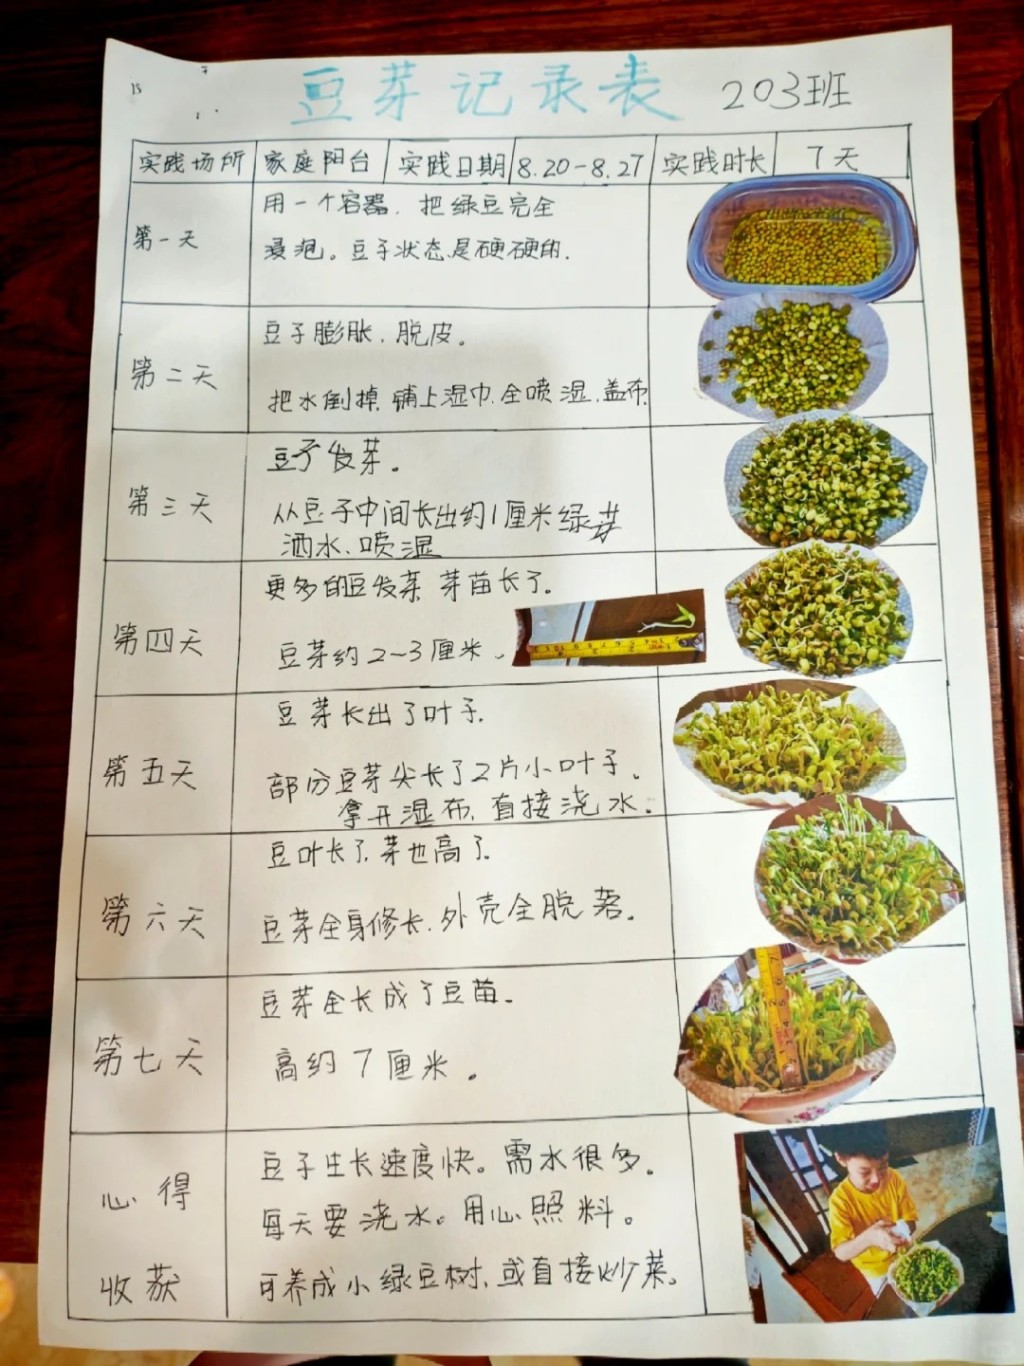 豆芽记录表 203班
实践场所 家庭阳台 实践日期 8.20-8.27 实践时长 7天
第一天
用一个容器，把绿豆完全
浸泡。豆子状态是硬硬的.
第二天
豆子膨胀，脱皮。
把水倒掉，铺上湿巾，全喷湿，盖布
第三天
豆子发芽。
从豆子中间长出约1厘米绿芽
洒水、喷湿
第四天
更多的豆发芽，芽苗长了.
豆芽约2~3厘米。
第五天
豆芽长出了叶子.
部份豆芽尖长了2片小叶子。
拿开湿布，直接浇水。
第六天
豆叶长了，芽也高了.
豆芽全身修长，外壳全脱落。
第七天
豆芽全长成了豆苗。
高约7厘米。
心得
收获
豆子生长速度快。需水很多。
每天要浇水。用心照料。
可养成小绿豆树，或直接炒菜。